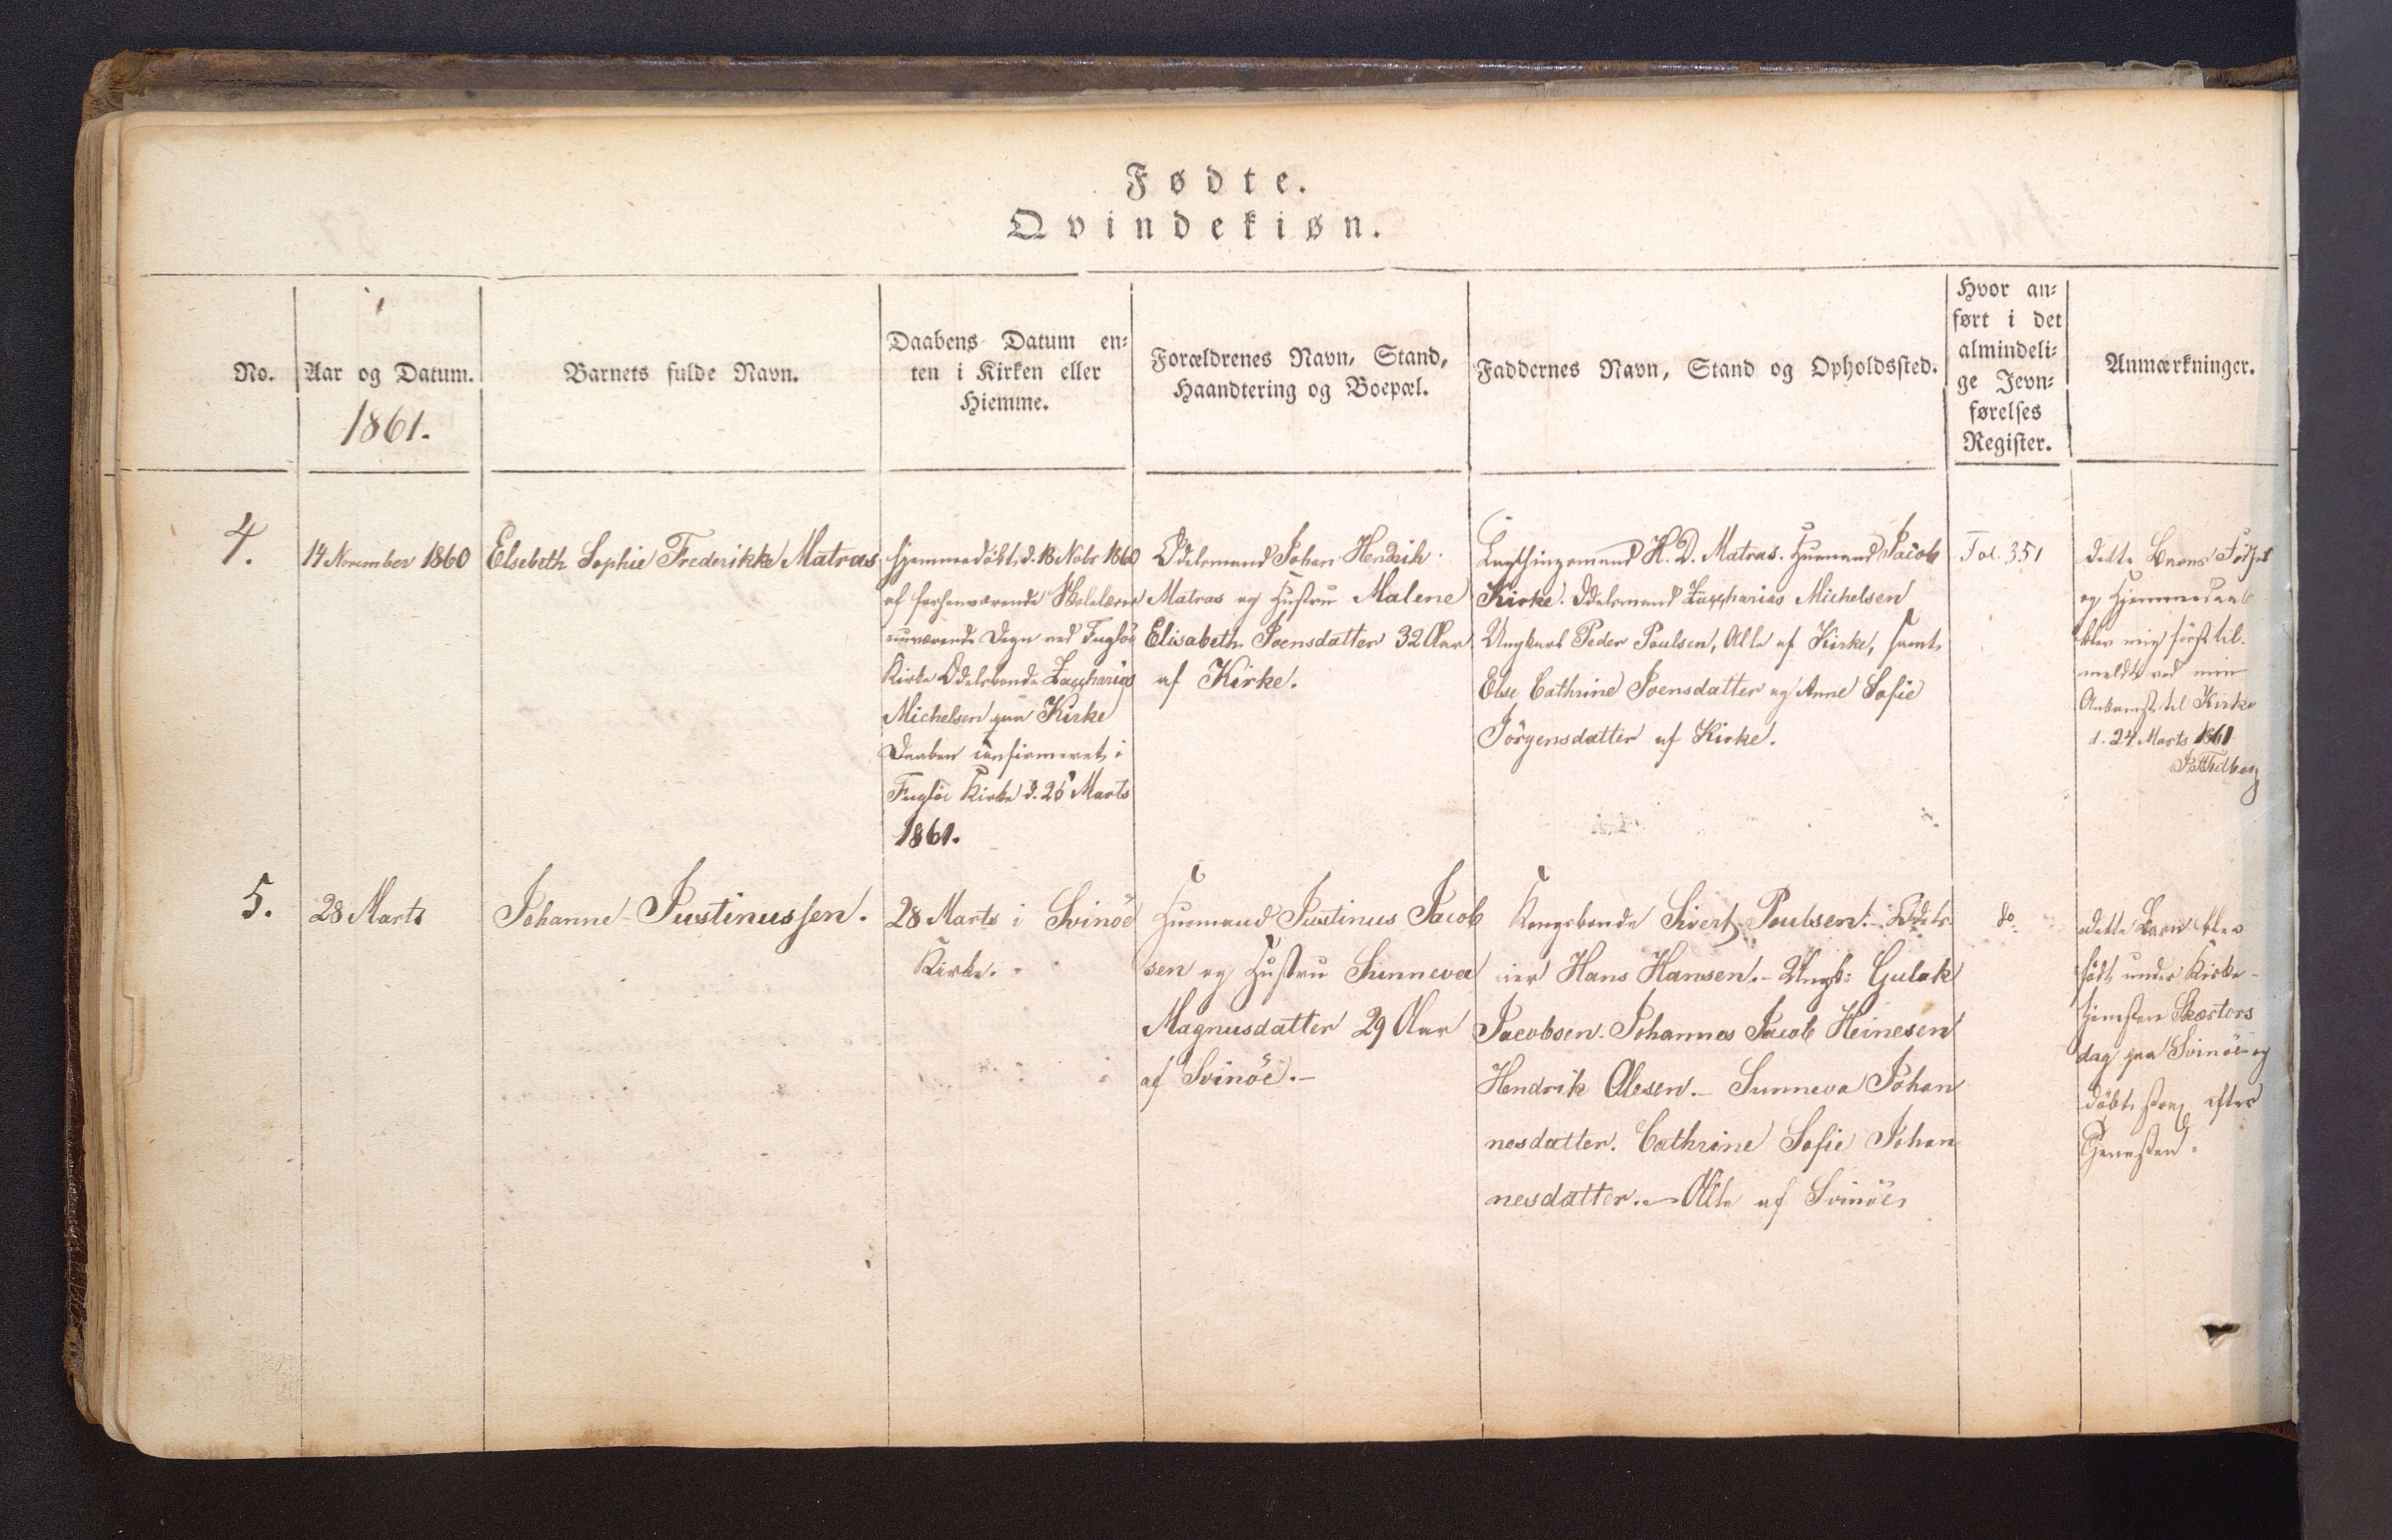 Fødte.
Qvindekiøn.
No.
Aar og Datum.
1861.
Barnets fulde Navn.
Daabens Datum en-
ten i Kirken eller
Hiemme.
Forældrenes Navn, Stand,
Haandtering og Boepæl.
Faddernes Navn, Stand og Opholdssted.
Hvor an-
ført i det
almindeli-
ge Jevn-
førelses
Register.
Anmærkninger.
4.
14 November 1860
Elsebeth Sophie Frederikke Matras
hjemmedöbt d. 18 Nobr 1860
af forhenværende Skolelærer
nuværende Degn ved Fuglöe
Kirke Odelsbonde Zacharias
Michelsen paa Kirke
Daaben confirmeret i
Fuglöe Kirke d. 26 Marts
1861.
Odelsmand Johan Hendrik
Matras og Hustru Malene
Elisabeth Joensdatter 32 Aar
af Kirke.
Lagthingsmand H. D. Matras. Huusmand Jacob
Kirke. Odelsmand Zacharias Michelsen
Ungkarl Peder Poulsen, Alle af Kirke, samt
Else Cathrine Joensdatter og Anne Sofie
Jörgensdatter af Kirke.
Fol. 351
Dette Barns Födsel
og Hjemmedaab
blev mig först til-
meldt ved min
Ankomst til Kirke
d. 24 Marts 1861
5.
28 Marts
Johanne Justinussen.
28 Marts i Svinöe
Kirke.
Huusmand Justinus Jacob
sen og Hustru Sunneva
Magnusdatter 29 Aar
af Svinöe.-
Kongsbonde Sivert Poulsen.- Odels-
eier Hans Hansen.- Ungk: Gulak
Jacobsen.- Johannes Jacob Heinesen
Hendrik Olesen.- Sunneva Johan
nesdatter. Cathrine Sofie Johan
nesdatter.- Alle af Svinöe,
do
dette Barn blev
födt under Kirke-
tjenesten Skærtors
dag paa Svinöe og
döbt strax efter
Tjenesten.